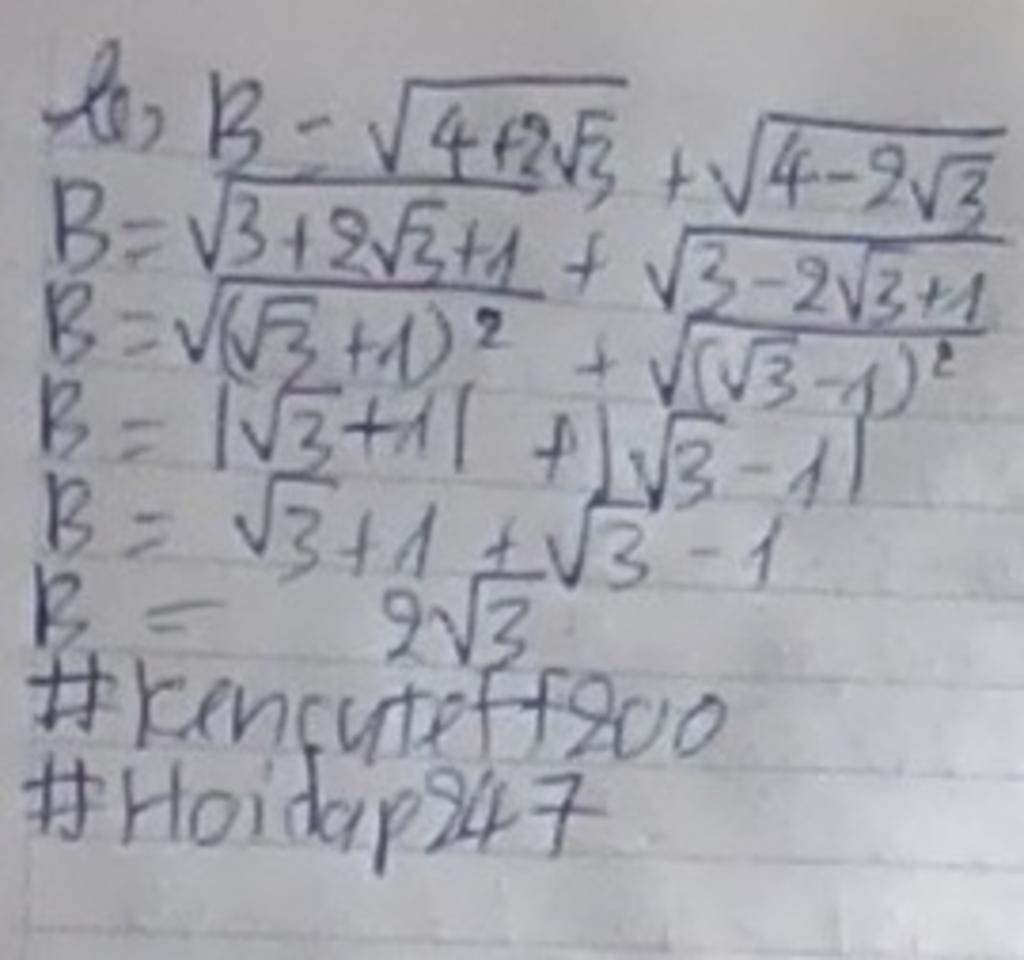 b, B = √(4+2√3) + √(4-2√3)
B = √(3+2√3+1) + √(3-2√3+1)
B = √((√3+1)²) + √((√3-1)²)
B = |√3+1| + |√3-1|
B = √3+1 + √3-1
B = 2√3
#kencuteff200
#Hoidap247